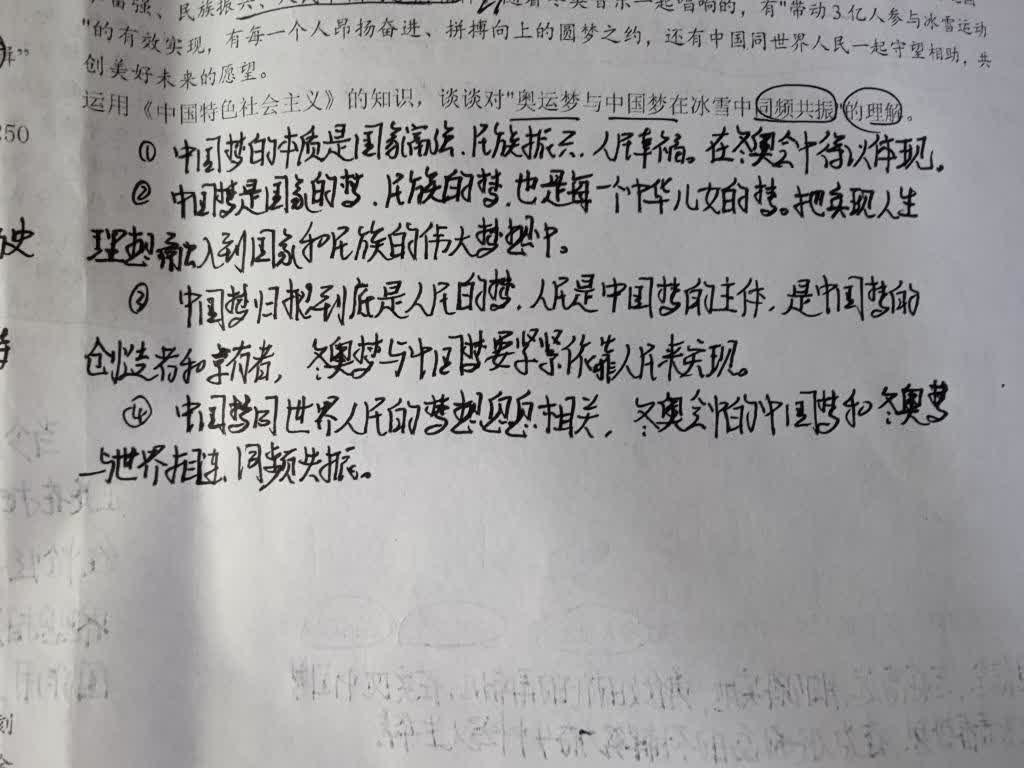 富强、民族振兴、人民
随着冬奥音乐一起唱响的，有"带动3亿人参与冰雪运动
"的有效实现，有每一个人昂扬奋进、拼搏向上的圆梦之约，还有中国同世界人民一起守望相助，共
创美好未来的愿望。
运用《中国特色社会主义》的知识，谈谈对"奥运梦与中国梦在冰雪中同频共振"的理解。
① 中国梦的本质是国家富强、民族振兴、人民幸福。在冬奥会中得以体现。
② 中国梦是国家的梦、民族的梦，也是每一个中华儿女的梦。把实现人生
理想融入到国家和民族的伟大梦想中。
③ 中国梦归根到底是人民的梦，人民是中国梦的主体，是中国梦的
创造者和享有者，冬奥梦与中国梦要紧紧依靠人民来实现。
④ 中国梦同世界人民的梦想息息相关，冬奥会的中国梦和冬奥梦
与世界相连，同频共振。
250
历史
刻